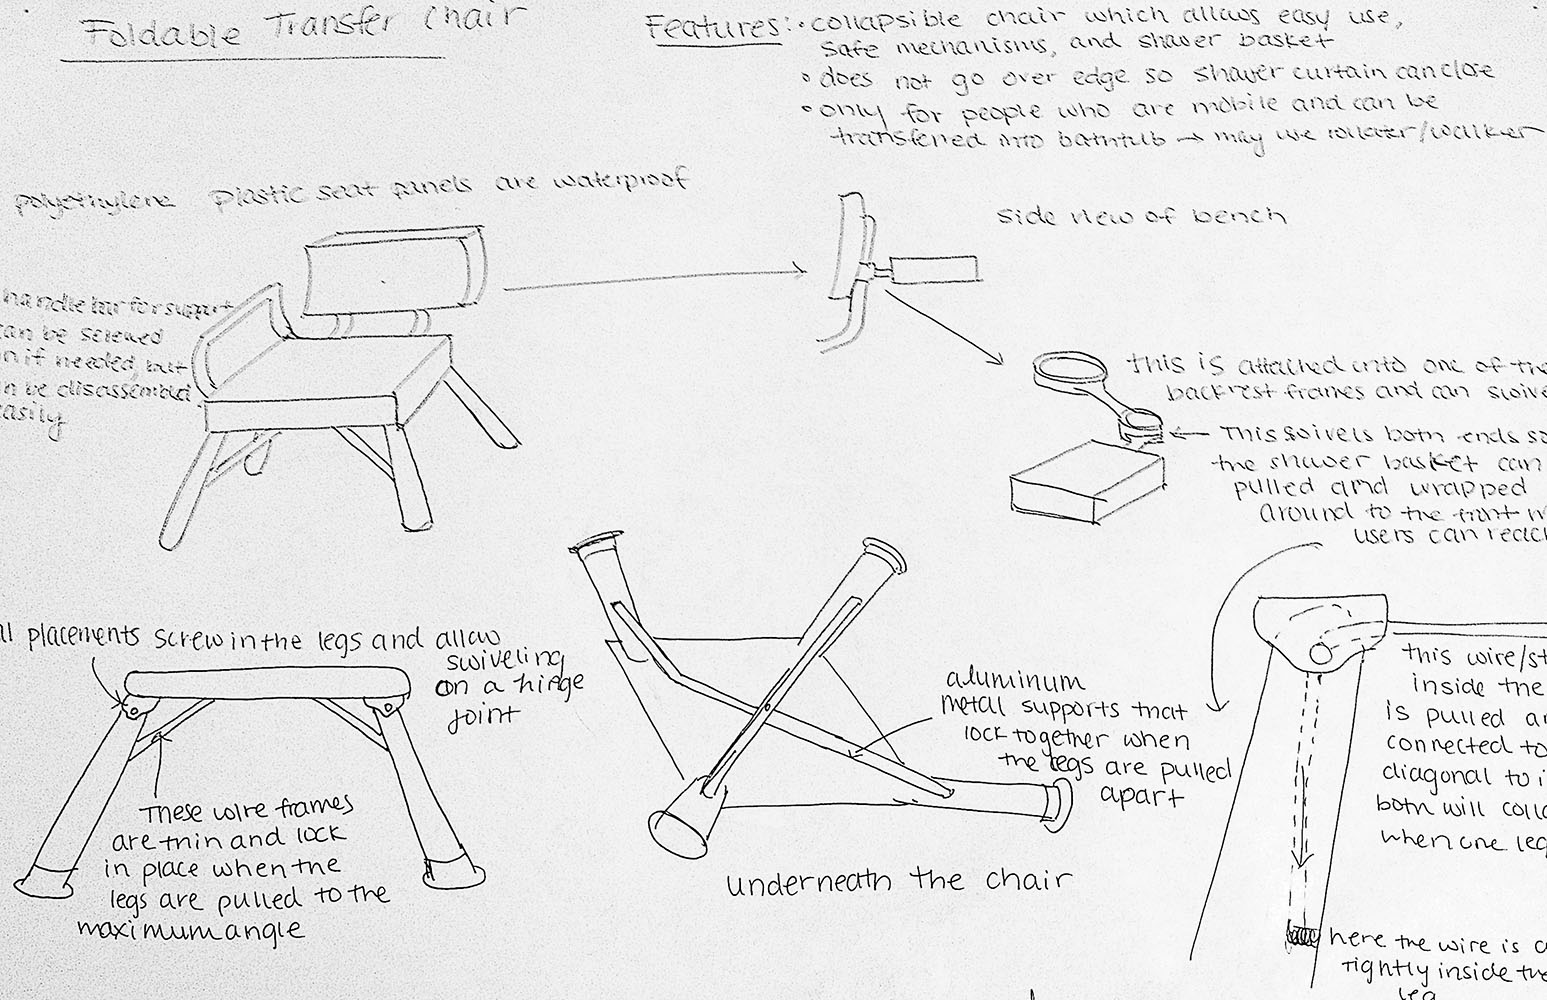 Foldable Transfer Chair
Features: • collapsible chair which allows easy use,
safe mechanisms, and shower basket
• does not go over edge so shower curtain can close
• only for people who are mobile and can be
transferred into bathtub → may use rollater/walker
polyethylene plastic seat panels are waterproof
side view of bench
handle bar for support
can be screwed
in if needed, but
can be disassembled
easily
this is attached into one of the
backrest frames and can swive
This swivels both ends so
the shower basket can
pulled and wrapped
around to the front
users can reach
placements screw in the legs and allow
swiveling
on a hinge
joint
These wire frames
are thin and lock
in place when the
legs are pulled to the
maximum angle
aluminum
metal supports that
lock together when
the legs are pulled
apart
underneath the chair
this wire/st
inside the
is pulled
connected to
diagonal to
both will colla
when one leg
here the wire is
tightly inside the
leg